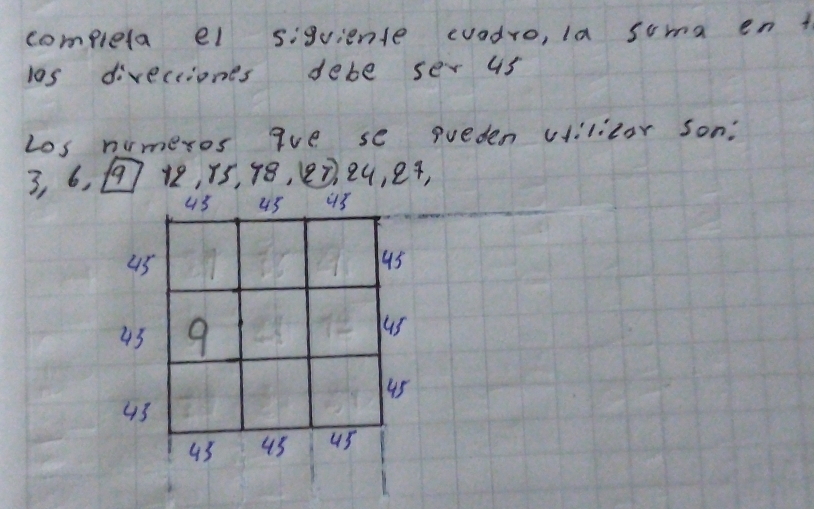 completa el siguiente cuadro, la suma en
los direcciones debe ser 45
Los numeros que se pueden utilizar son:
3, 6, 9 12, 15, 18, 21, 24, 27,
45 45 45
45 45
45 9 45
45 45
45 45 45